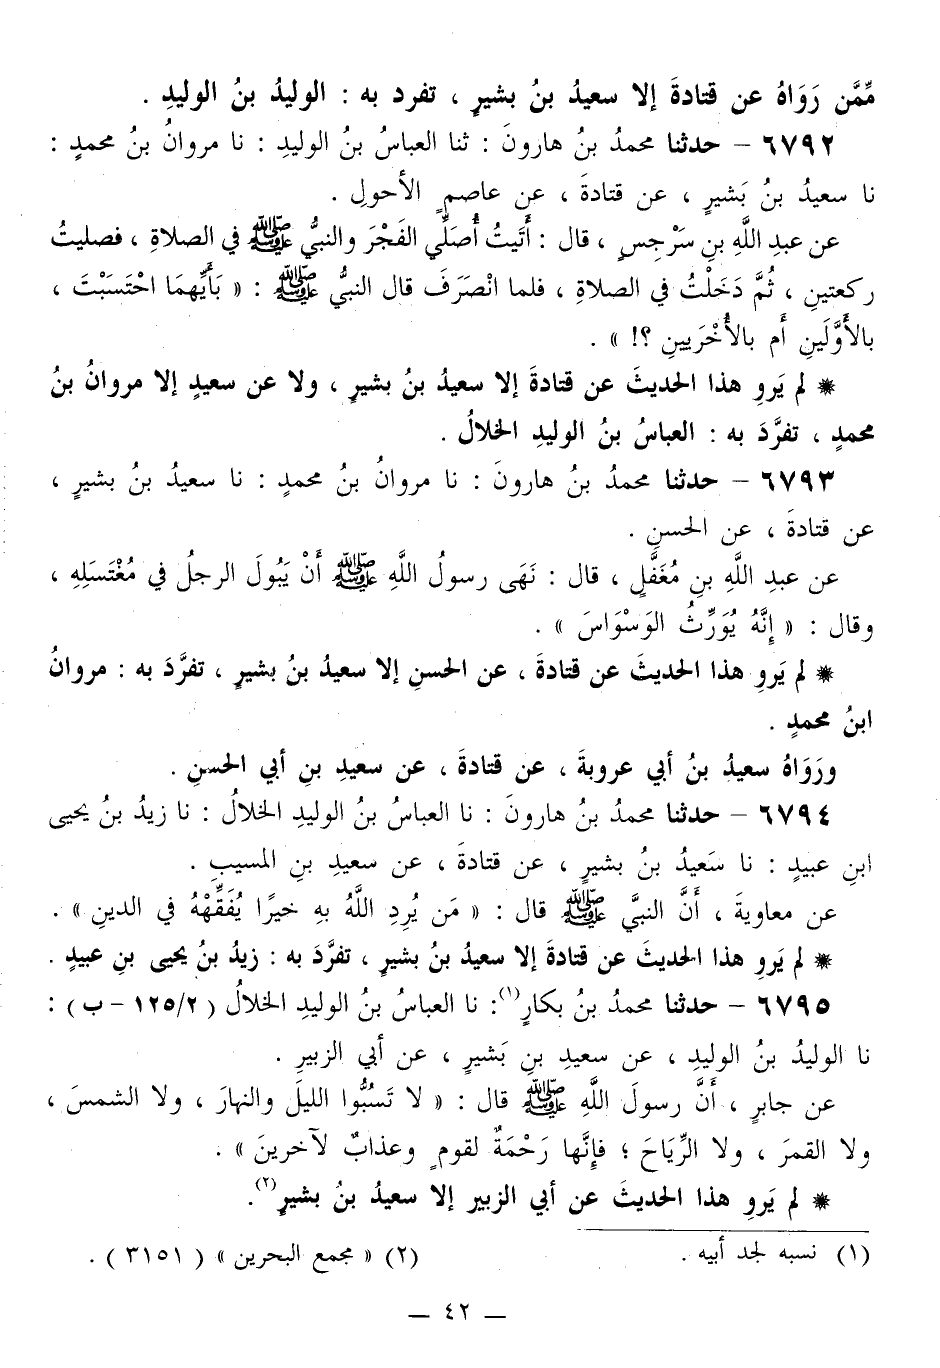 مِّمَّن رَوَاهُ عن قتادةَ إلا سعيدُ بنُ بشيرٍ ، تفرد به : الوليدُ بنُ الوليدِ .
٦٧٩٢ – حدثنا محمدُ بنُ هارونَ : ثنا العباسُ بنُ الوليدِ : نا مروانُ بنُ محمدٍ :
نا سعيدُ بنُ بَشيرٍ ، عن قتادةَ ، عن عاصمٍ الأحولِ .
عن عبدِ اللَّهِ بنِ سَرْجِسٍ ، قال : أَتَيتُ أُصَلِّي الفَجْرَ والنبيُّ ﷺ في الصلاةِ ، فصليتُ
ركعتينِ ، ثُمَّ دَخَلْتُ في الصلاةِ ، فلما انْصَرَفَ قال النبيُّ ﷺ : « بَأَيِّهِمَا احْتَسَبْتَ ،
بالأَوَّلَينِ أَم بالأُخْرَيينِ ؟! » .
* لم يَروِ هذا الحديثَ عن قتادةَ إلا سعيدُ بنُ بشيرٍ ، ولا عن سعيدٍ إلا مروانُ بنُ
محمدٍ ، تفرَّدَ به : العباسُ بنُ الوليدِ الخلالُ .
٦٧٩٣ – حدثنا محمدُ بنُ هارونَ : نا مروانُ بنُ محمدٍ : نا سعيدُ بنُ بشيرٍ ،
عن قتادةَ ، عن الحسنِ .
عن عبدِ اللَّهِ بنِ مُغَفَّلٍ ، قال : نَهَى رسولُ اللَّهِ ﷺ أَنْ يَبُولَ الرجلُ في مُغْتَسَلِهِ ،
وقال : « إِنَّهُ يُوَرِّثُ الوَسْوَاسَ » .
* لم يَروِ هذا الحديثَ عن قتادةَ ، عن الحسنِ إلا سعيدُ بنُ بشيرٍ ، تفرَّدَ به : مروانُ
ابنُ محمدٍ .
ورَوَاهُ سعيدُ بنُ أبي عروبةَ ، عن قتادةَ ، عن سعيدِ بنِ أبي الحسنِ .
٦٧٩٤ – حدثنا محمدُ بنُ هارونَ : نا العباسُ بنُ الوليدِ الخلالُ : نا زيدُ بنُ يحيى
ابنِ عبيدٍ : نا سَعيدُ بنُ بشيرٍ ، عن قتادةَ ، عن سعيدِ بنِ المسيبِ .
عن معاويةَ ، أَنَّ النبيَّ ﷺ قال : « مَن يُرِدِ اللَّهُ بِهِ خيرًا يُفَقِّهْهُ في الدينِ » .
* لم يَروِ هذا الحديثَ عن قتادةَ إلا سعيدُ بنُ بشيرٍ ، تفرَّدَ به : زيدُ بنُ يحيى بنِ عبيدٍ .
٦٧٩٥ – حدثنا محمدُ بنُ بكارٍ(١): نا العباسُ بنُ الوليدِ الخلالُ ( ١٢٥/٢ – ب ) :
نا الوليدُ بنُ الوليدِ ، عن سعيدِ بنِ بَشيرٍ ، عن أبي الزبيرِ .
عن جابرٍ ، أَنَّ رسولَ اللَّهِ ﷺ قال : « لا تَسبُّوا الليلَ والنهارَ ، ولا الشمسَ ،
ولا القمرَ ، ولا الرِّيَاحَ ؛ فإنَّها رَحْمَةٌ لقومٍ وعذابٌ لآخرينَ » .
* لم يَروِ هذا الحديثَ عن أبي الزبير إلا سعيدُ بنُ بشيرٍ(٢).
(١) نسبه لجد أبيه . (٢) « مجمع البحرين » ( ٣١٥١ ) .
— ٤٢ —